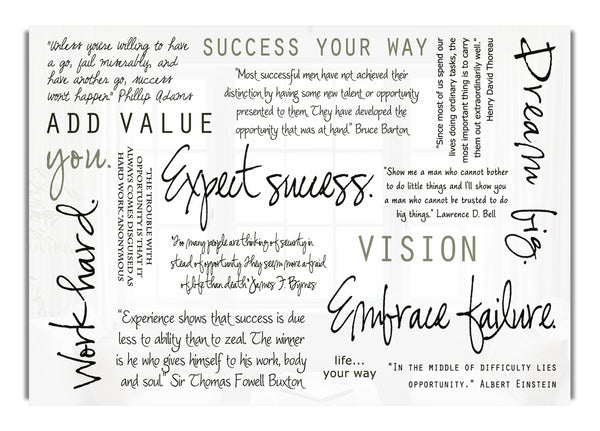 "Unless you're willing to have
a go, fail miserably, and
have another go, success
won't happen." Phillip Adams
SUCCESS YOUR WAY
"Most successful men have not achieved their
distinction by having some new talent or opportunity
presented to them. They have developed the
opportunity that was at hand." Bruce Barton
"Since most of us spend our
lives doing ordinary tasks, the
most important thing is to carry
them out extraordinarily well."
Henry David Thoreau
Dream big.
ADD VALUE
you.
THE TROUBLE WITH
OPPORTUNITY IS THAT IT
ALWAYS COMES DISGUISED AS
HARD WORK. ANONYMOUS
Expect success.
"Show me a man who cannot bother
to do little things and I'll show you
a man who cannot be trusted to do
big things." Lawrence D. Bell
Work hard.
"Too many people are thinking of security in
stead of opportunity. They seem more afraid
of life than death." James F. Byrnes
VISION
Embrace failure.
"Experience shows that success is due
less to ability than to zeal. The winner
is he who gives himself to his work, body
and soul." Sir Thomas Fowell Buxton
life...
your way
"IN THE MIDDLE OF DIFFICULTY LIES
OPPORTUNITY." Albert Einstein